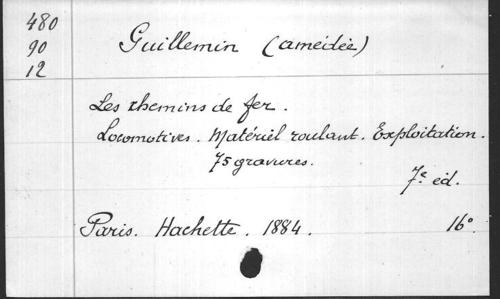 480
90
12
Guillemin (amédée)
Les chemins de fer.
Locomotives. Matériel roulant. Exploitation.
75 gravures.
7e. éd.
Paris. Hachette. 1884. 16°